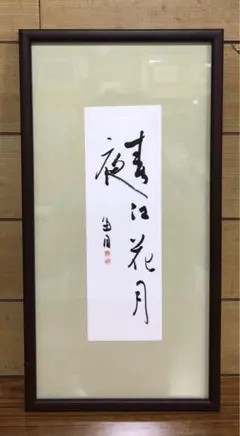 春江花月
夜